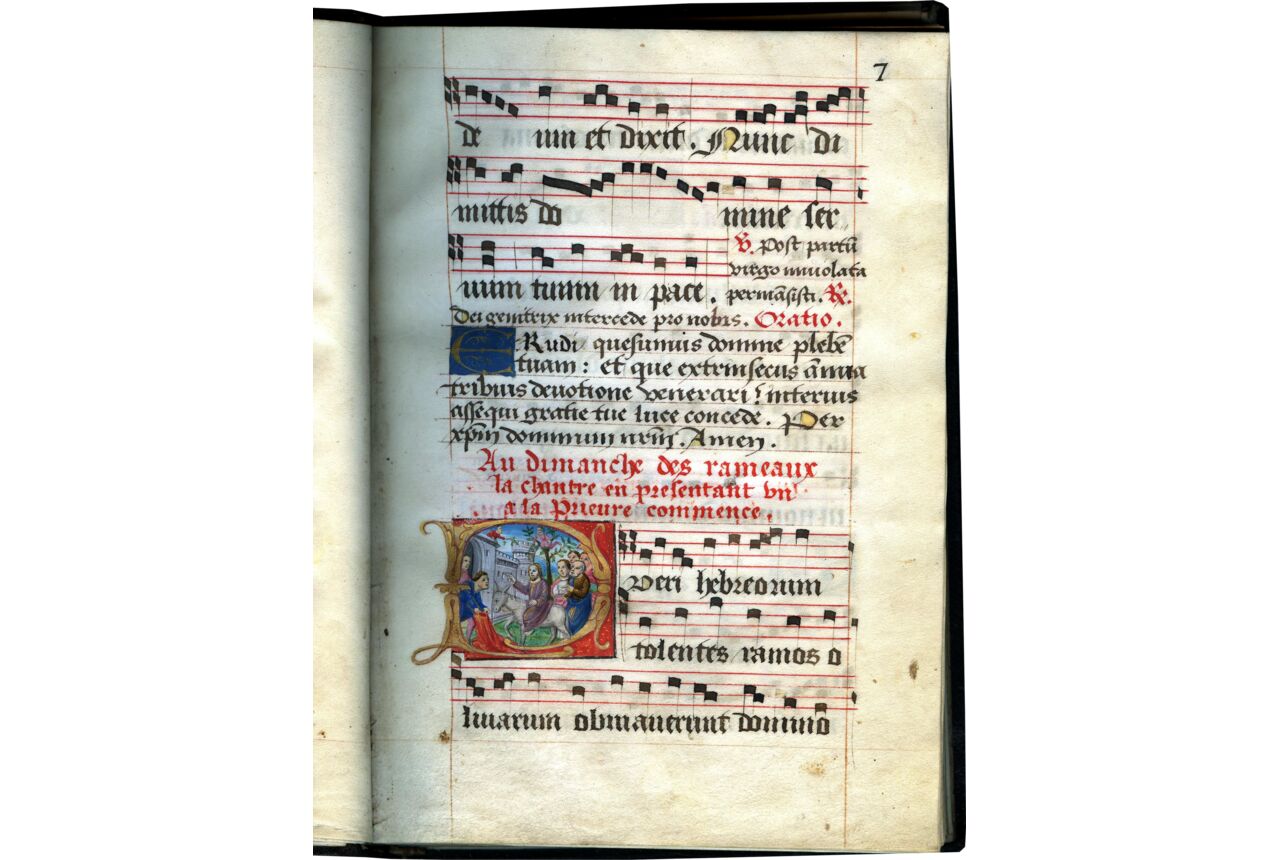 7
de um et dixit. Nunc di
mittis do mine ser
uum tuum in pace.
V. Post partū
virgo inuiolata
permāsisti. R.
Dei genitrix intercede pro nobis. Oratio.
ERudi quesumus domine plebē
tuam: et que extrinsecus ānua
tribuis deuotione venerari? interius
assequi gratie tue luce concede. Per
xpm̄ dominum nrm̄. Amen.
Au dimanche des rameaux
la chantre en presentant vn
a la Prieure commence.
Pueri hebreorum
tolentes ramos o
liuarum obuiauerunt domino